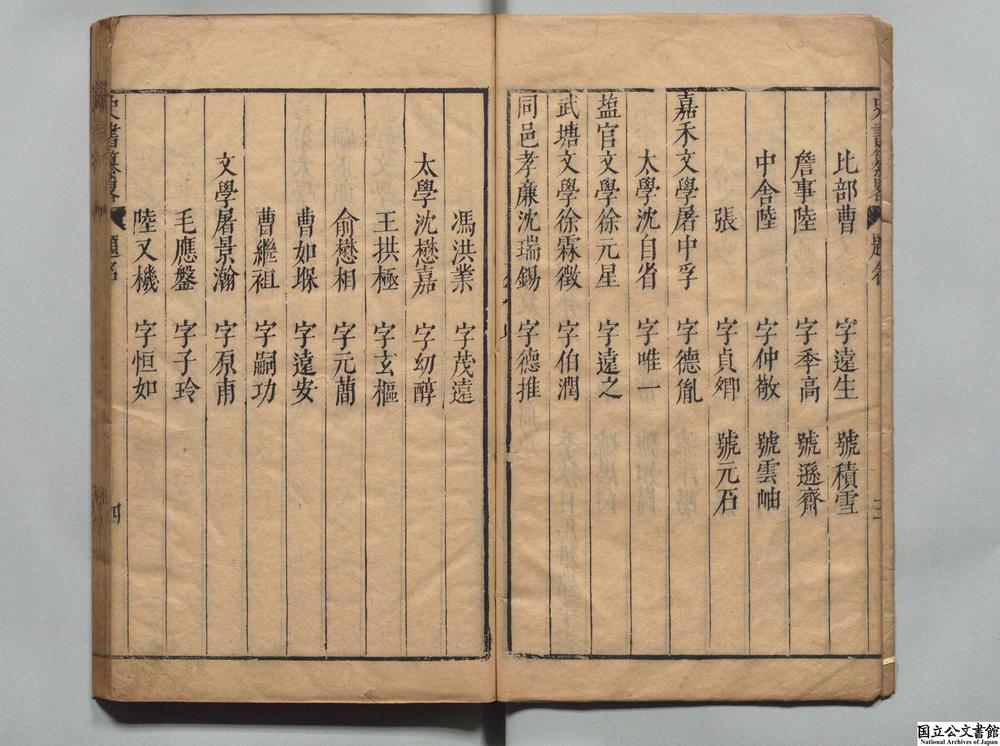 史書纂畧 題名
比部曹 字遠生 號積雪
詹事陸 字季高 號遜齊
中舍陸 字仲敬 號雲岫
張 字貞卿 號元石
嘉禾文學屠中孚 字德胤
太學沈自省 字唯一
塩官文學徐元星 字遠之
武塘文學徐霖徵 字伯潤
同邑孝廉沈瑞錫 字德推
馮洪業 字茂遠
太學沈懋嘉 字幼醇
王拱極 字玄樞
俞懋相 字元蕳
曹如堢 字遠安
曹繼祖 字嗣功
文學屠景瀚 字原甫
毛應盤 字子玲
陸又機 字恒如
史書纂畧 題名 四
国立公文書館
National Archives of Japan